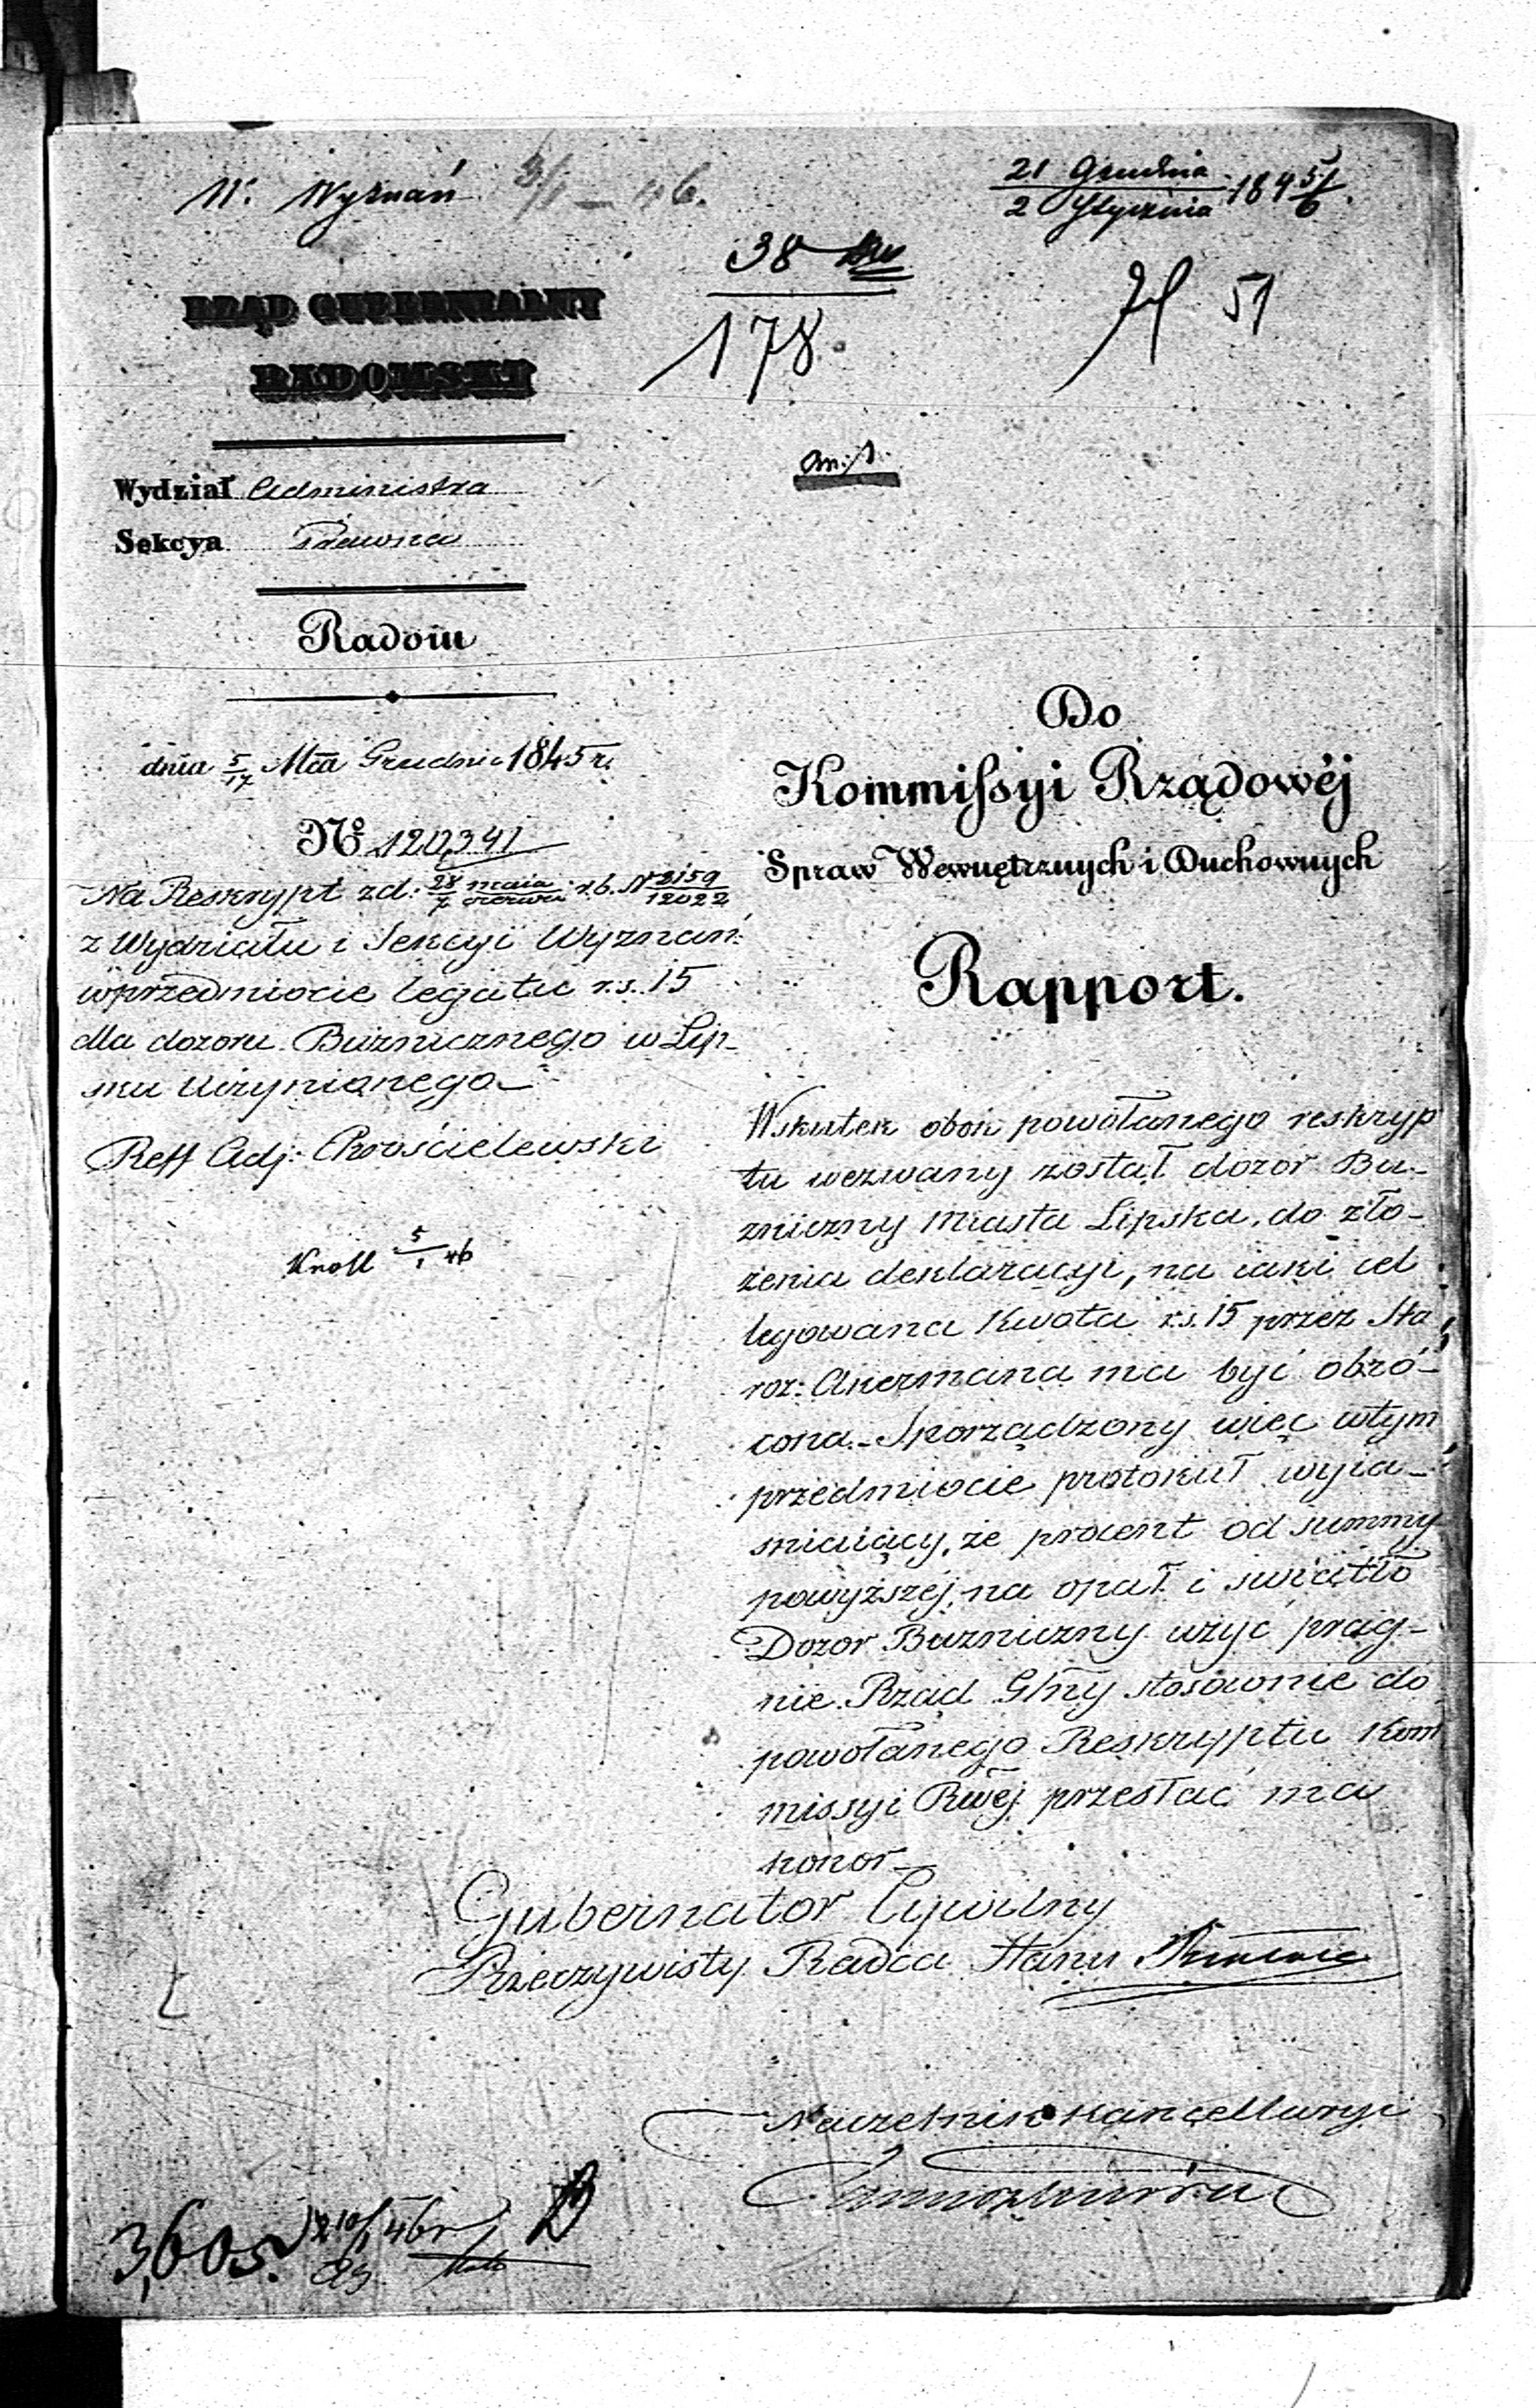 W. Wyznań 3/1 – 46.
21 Grudnia / 2 Stycznia 1845/6.
38
178
51
RZĄD GUBERNIALNY
RADOMSKI
Wydział Administra
Sekcya Prawna
Radom
dnia 5/17 Mca Grudnia 1845 r.
Nº 120,341
Na Reskrypt z d: 28 maia / 7 czerwca r.b. N 3159 / 12022
z Wydziału i Sekcyi Wyznań
w przedmiocie legatu r.s. 15
dla dozoru Bużnicznego w Lip-
sku uczynionego
Reff Adj:
Kroll 5/1 46
Do
Kommissyi Rządowéj
Spraw Wewnętrznych i Duchownych
Rapport.
Wskutek obok powołanego reskryp
tu wezwany został dozór Bu-
zniczny Miasta Lipska, do zło-
żenia deklaracyi, na iaki cel
legowana Kwota r.s. 15 przez Sta
roz: Akermana ma być obró-
cona. Sporządzony więc w tym
przedmiocie protokuł wyia-
sniaiący, że procent od summy
powyższéj, na opał i swiatło
Dozor Buzniczny użyć prag-
nie. Rząd Glny stosownie do
powołanego Reskryptu Kom
missyi Rwéj przesłać ma
honor
Gubernator Cywilny
Rzeczywisty Radca Stanu
Naczelnik Kancellaryi
3,605.